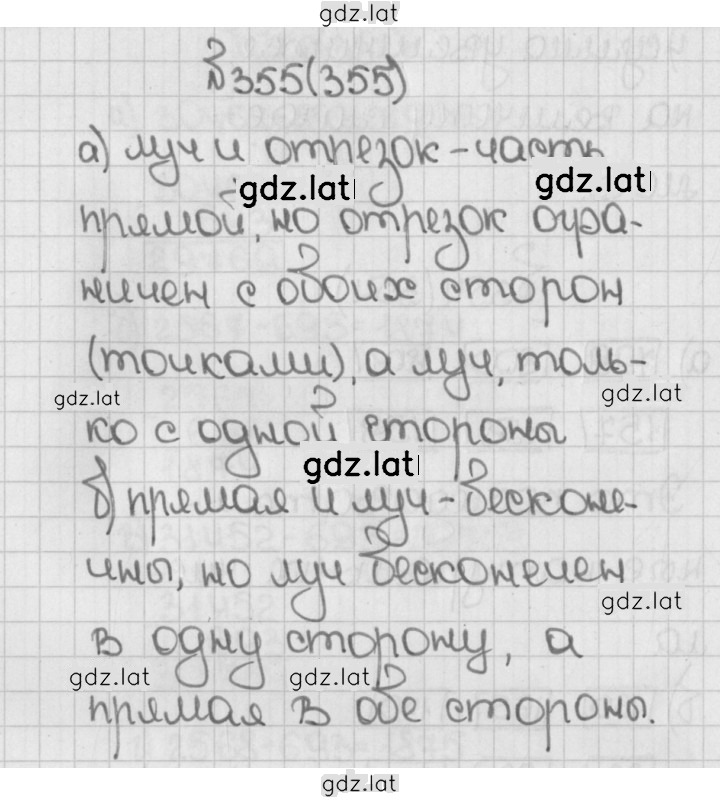 gdz.lat
№355(355)
а) луч и отрезок - часть
gdz.lat gdz.lat
прямой, но отрезок огра-
ничен с обоих сторон
(точками), а луч, толь-
gdz.lat gdz.lat
ко с одной стороны
gdz.lat
б) прямая и луч - бесконе-
чны, но луч бесконечен
gdz.lat
в одну сторону, а
gdz.lat gdz.lat
прямая в обе стороны.
gdz.lat